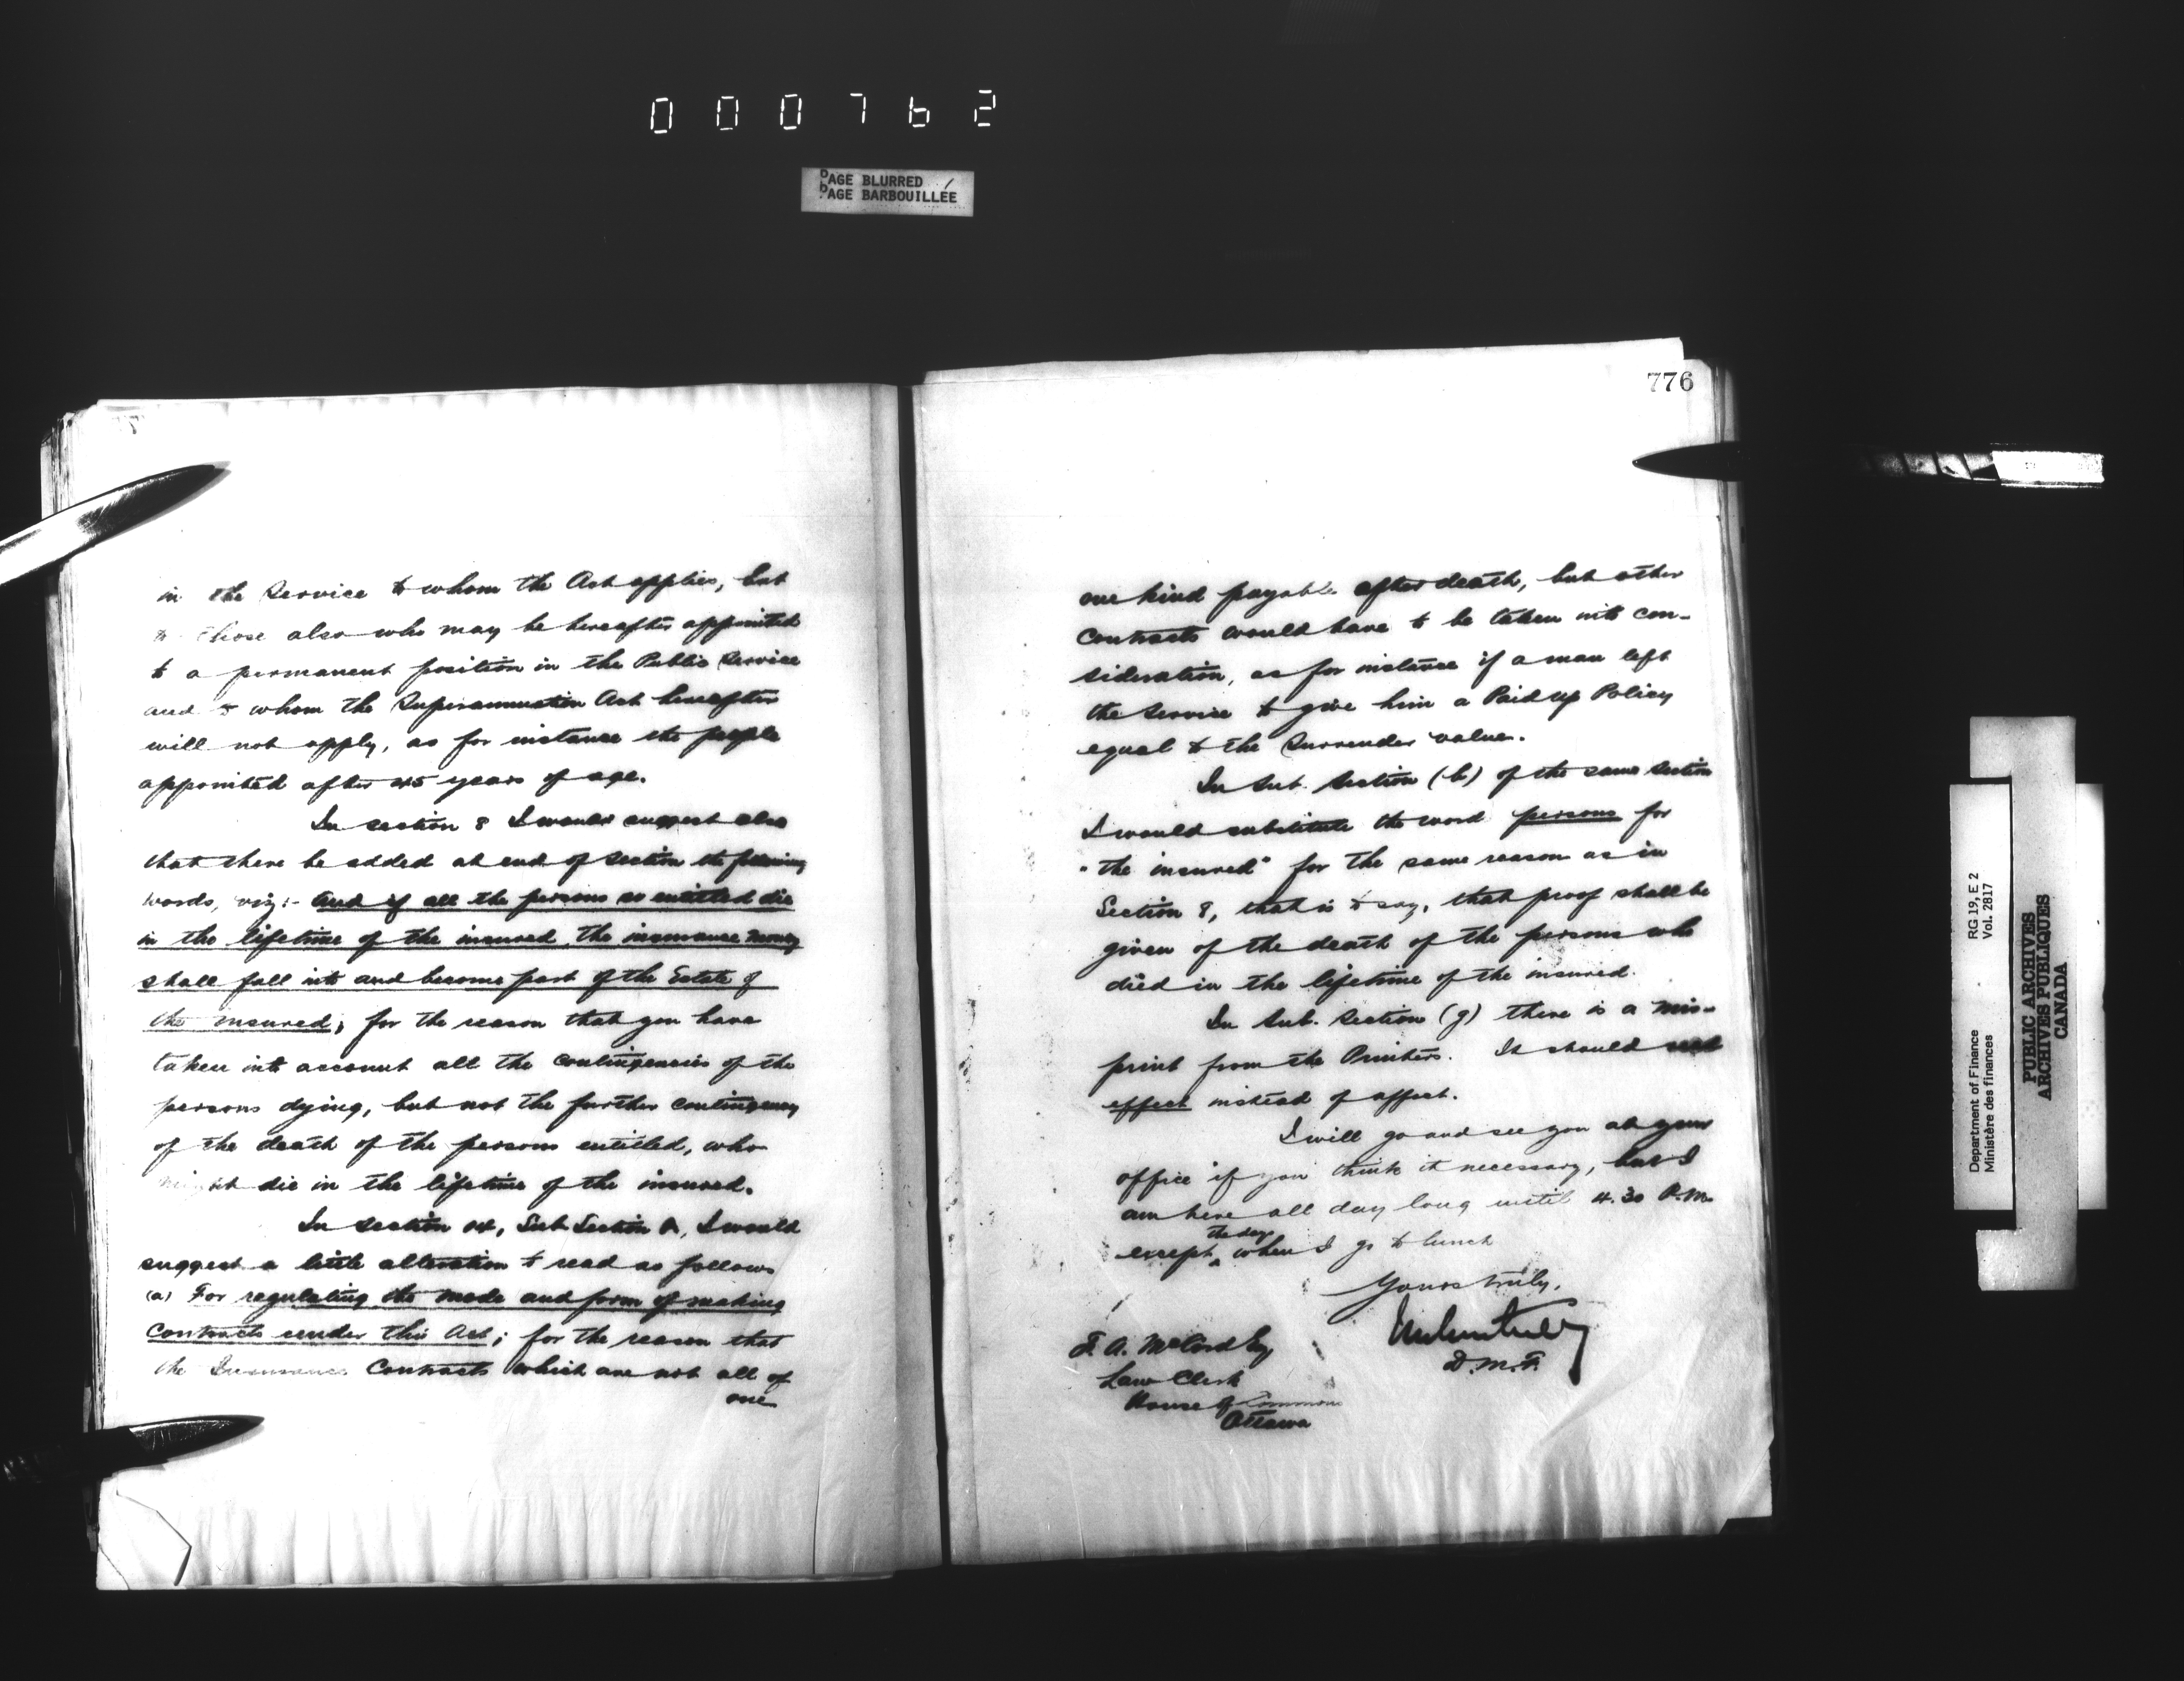 000762
PAGE BLURRED
PAGE BARBOUILLÉE
in the Service to whom the Act applies, but
to those also who may be hereafter appointed
to a permanent position in the Public Service
and to whom the Superannuation Act hereafter
will not apply, as for instance the people
appointed after 45 years of age.
In section 8 I would suggest also
that there be added at end of Section the following
words, viz:- And if all the persons so entitled die
in the lifetime of the insured, the insurance money
shall fall into and become part of the Estate of
the insured; for the reason that you have
taken into account all the contingencies of the
persons dying, but not the further contingency
of the death of the persons entitled, who
might die in the lifetime of the insured.
In Section 14, Sub Section A, I would
suggest a little alteration to read as follows
(a) For regulating the mode and form of making
Contracts under this Act; for the reason that
the Insurance Contracts which are not all of
one
776
one kind payable after death, but other
Contracts would have to be taken into con-
sideration, as for instance if a man left
the Service to give him a Paid up Policy
equal to the Surrender value.
In Sub. Section (b) of the same Section
I would substitute the word persons for
"the insured" for the same reason as in
Section 8, that is to say, that proof shall be
given of the death of the persons who
died in the lifetime of the insured.
In Sub. Section (g) there is a mis-
print from the Printers. It should read
effect instead of affect.
I will go and see you at your
office if you think it necessary, but I
am here all day long until 4.30 P.M.
the day
except when I go to lunch
Yours truly,
D.M.F.
F. A. McCord Esq
Law Clerk
House of Commons
Ottawa
Department of Finance RG 19, E 2
Ministère des finances Vol. 2817
PUBLIC ARCHIVES
ARCHIVES PUBLIQUES
CANADA